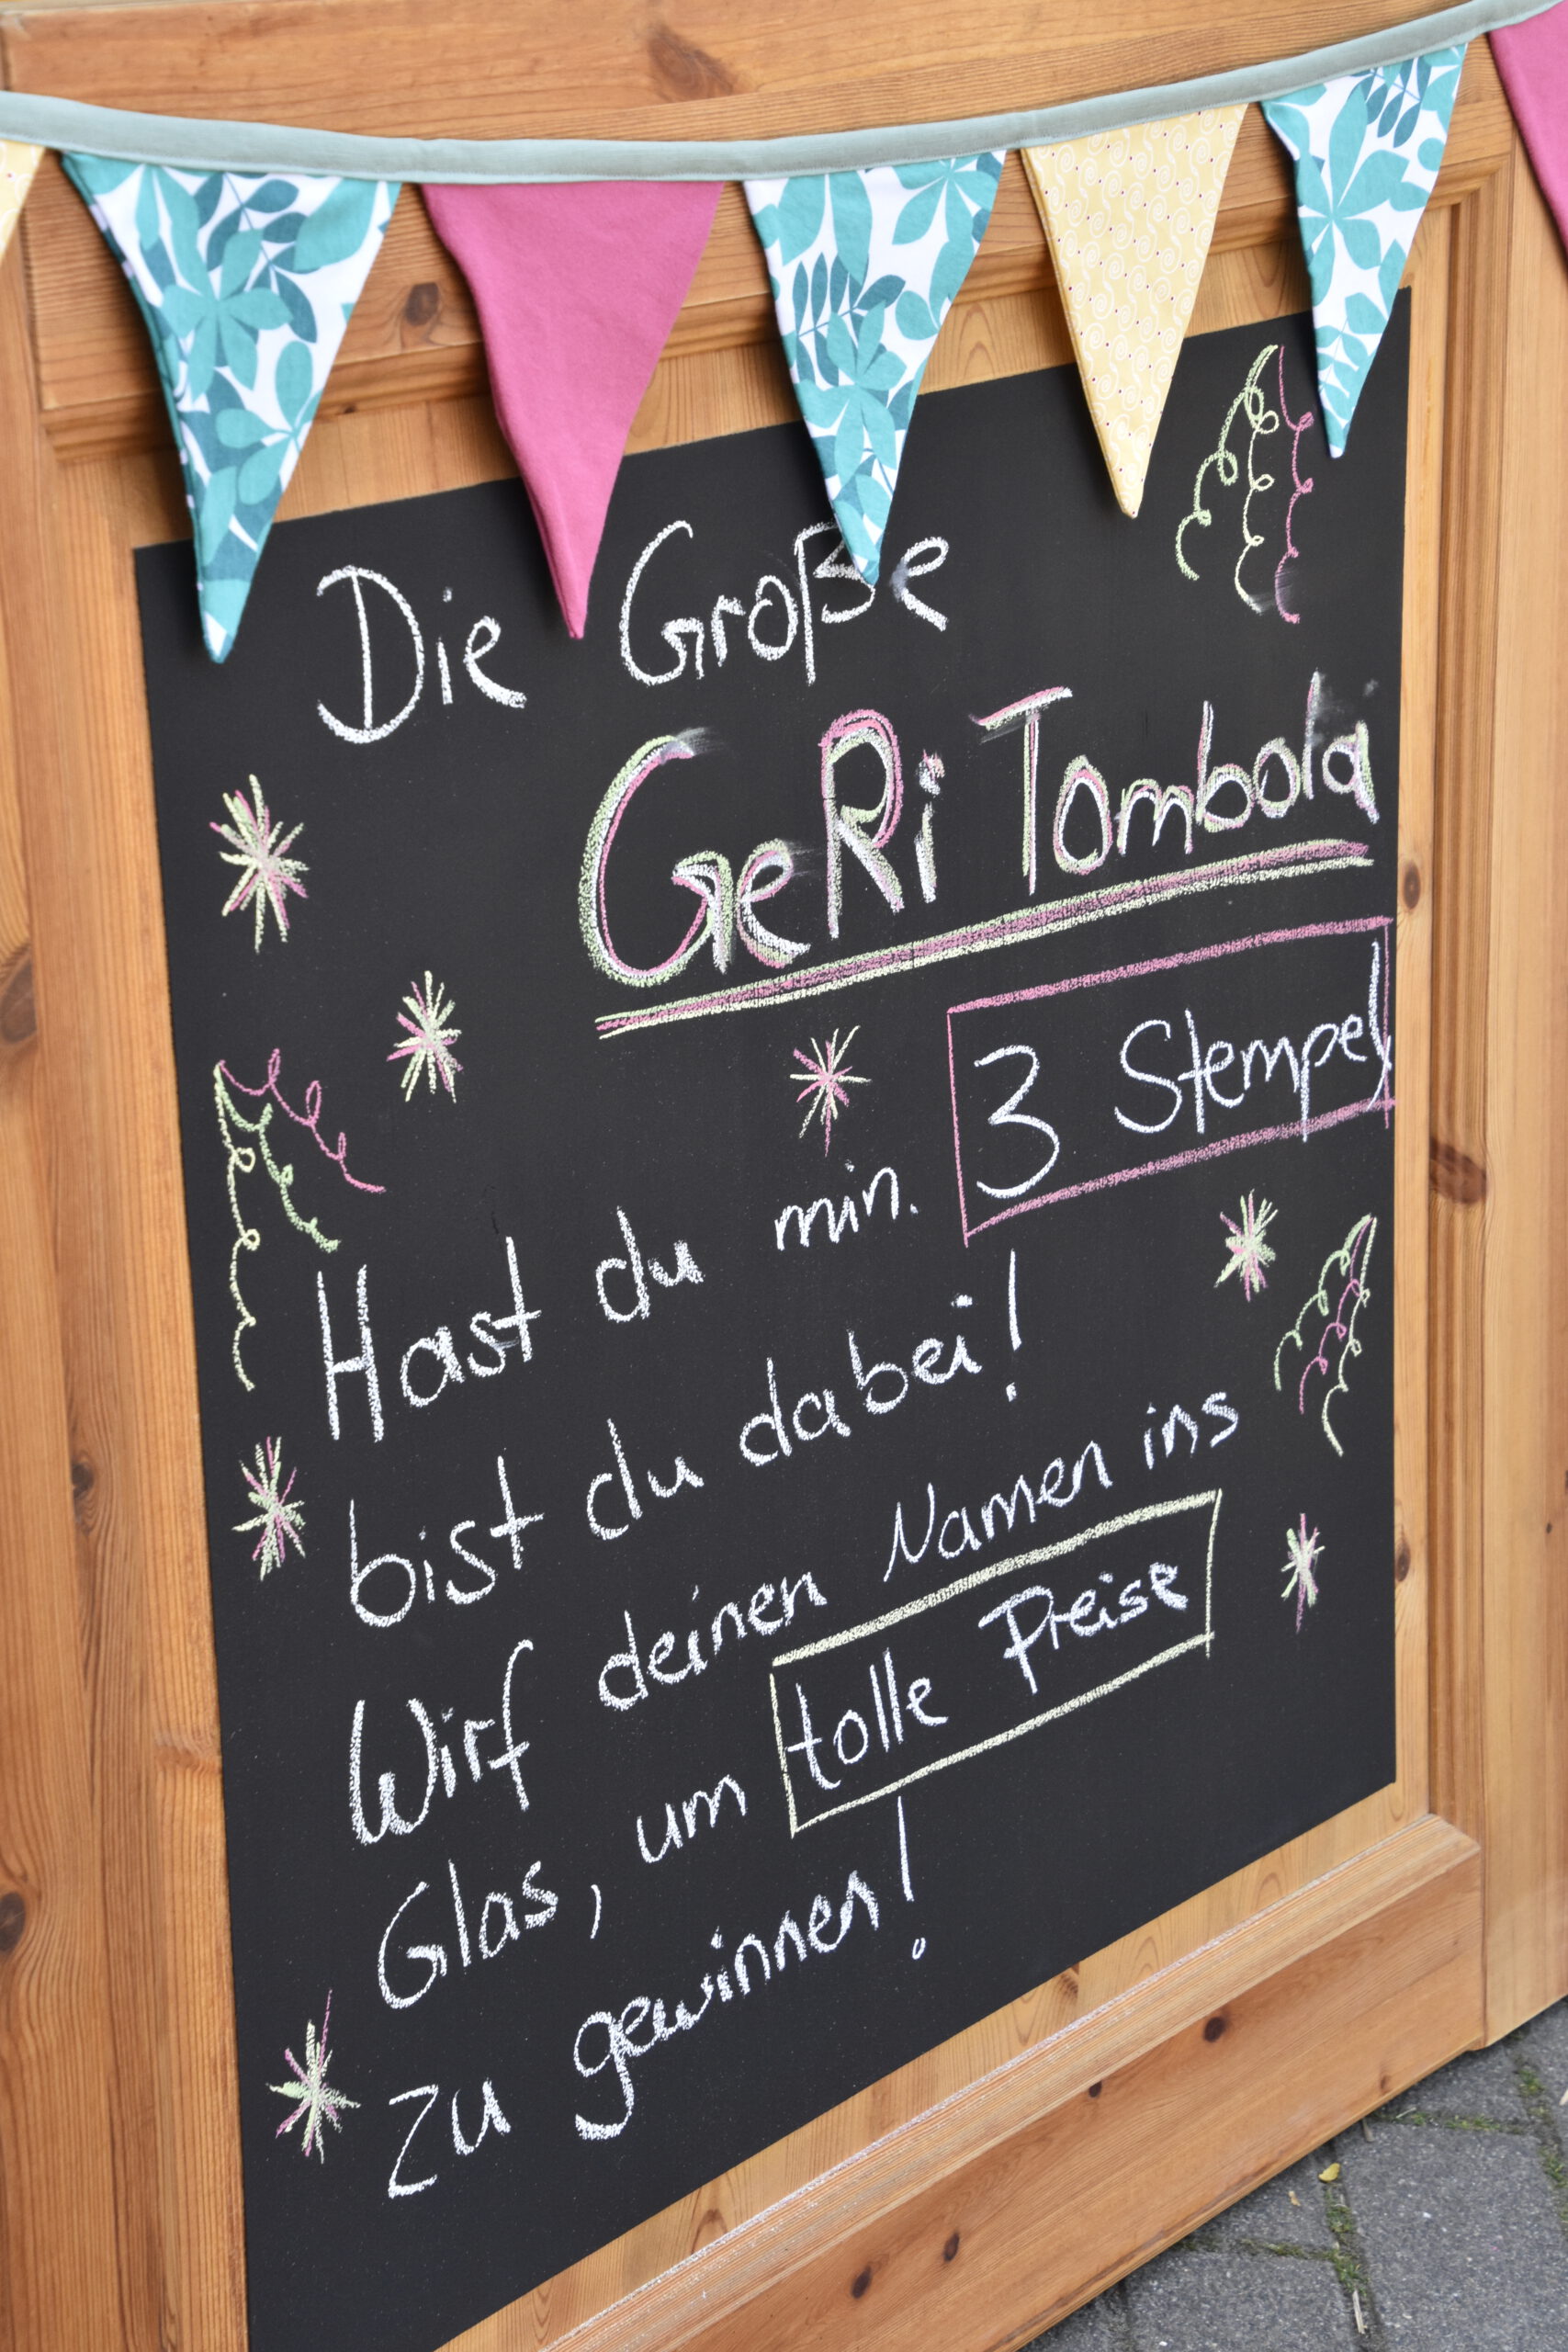 Die Große
GeRi Tombola
Hast du min. 3 Stempel
bist du dabei!
Wirf deinen Namen ins
Glas, um tolle Preise
zu gewinnen!